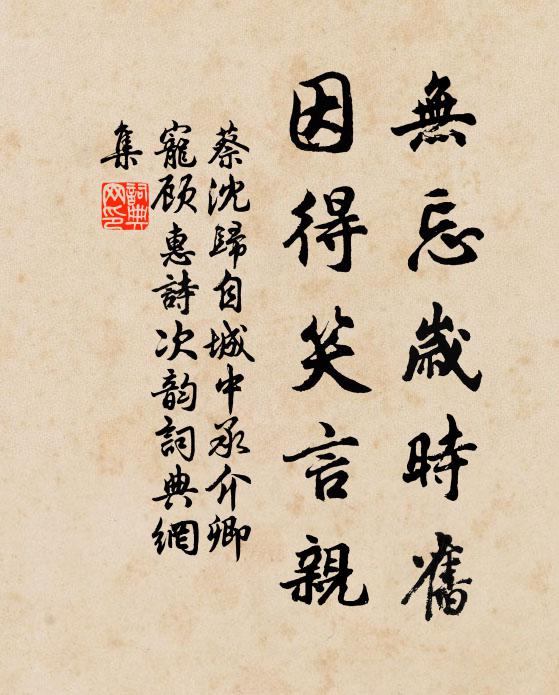 無忘歲時舊
因得笑言親
蔡沈歸自城中承介卿
寵顧惠詩次韵詞典網
集
詞典網印